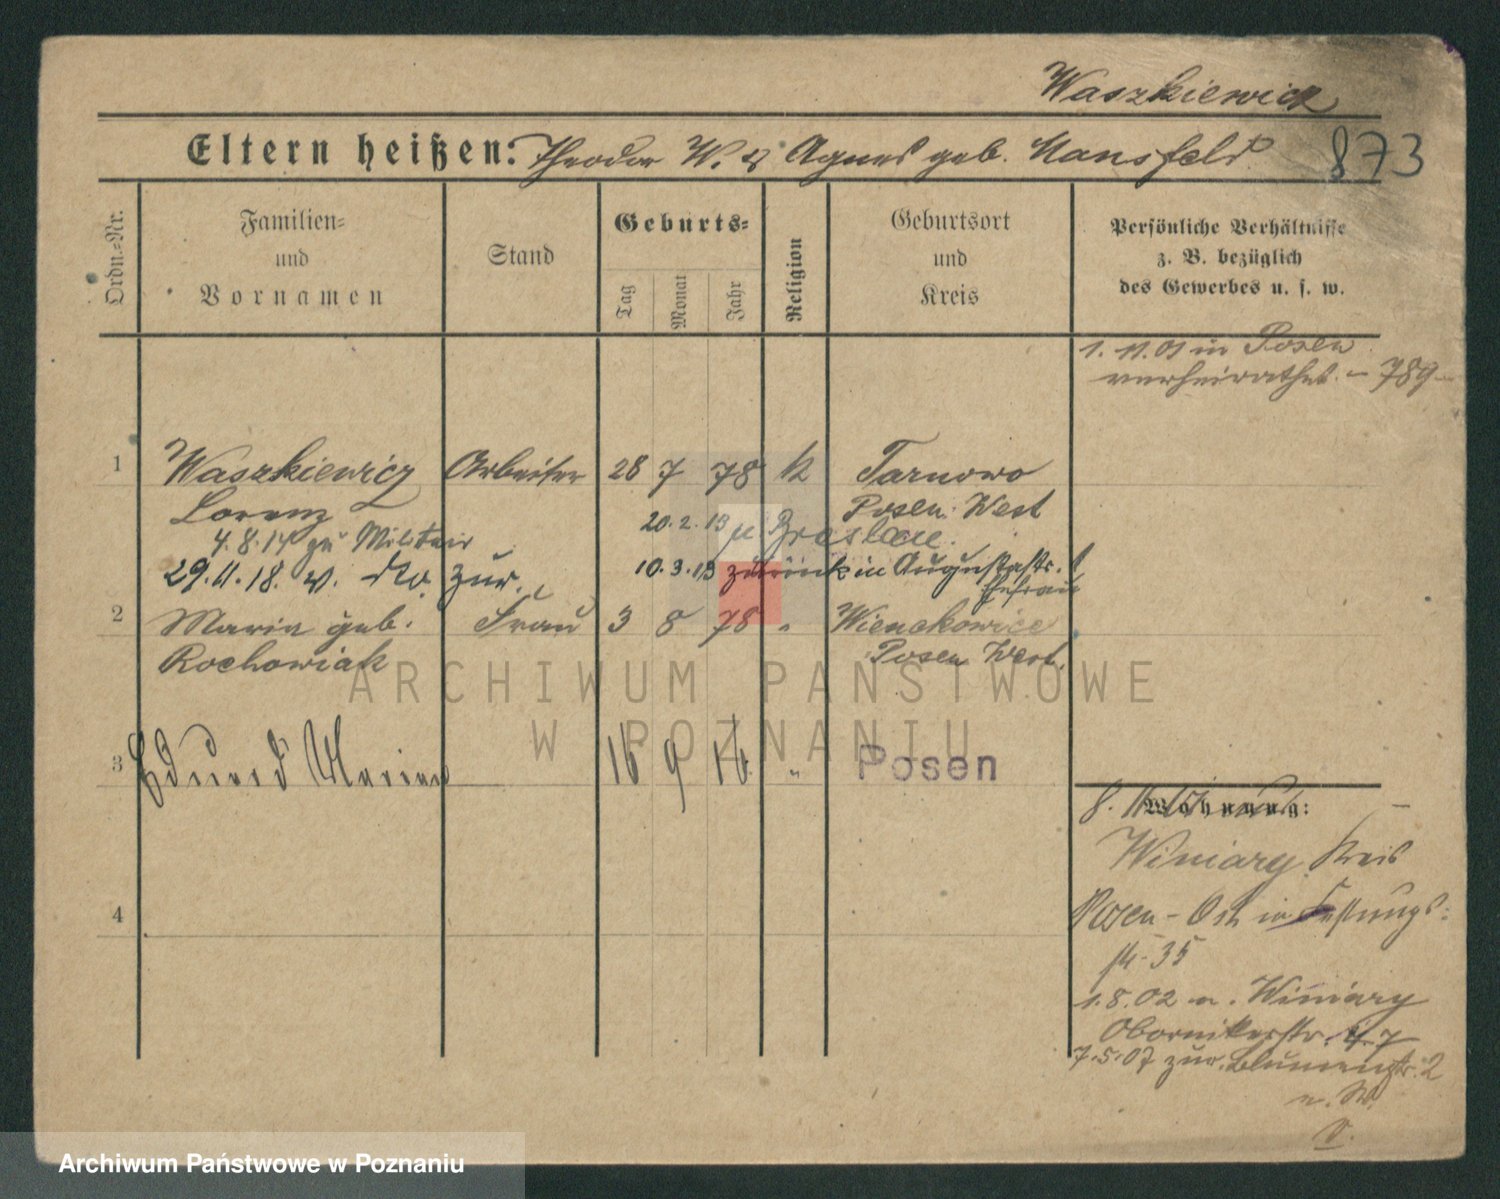 Waszkiewicz
Eltern heißen: Theodor W. & Agnes geb. Mansfeld 873
Ordn.-Nr.
Familien-
und
Vornamen
Stand
Geburts-
Tag
Monat
Jahr
Religion
Geburtsort
und
Kreis
Persönliche Verhältnisse
z. B. bezüglich
des Gewerbes u. s. w.
1. 11. 01 in Posen
verheirathet. - 789 -
1 Waszkiewicz Arbeiter 28 7 78 k Tarnowo
Lorenz Posen West
20. 2. 13 n Breslau.
4. 8. 14 zu Militair
10. 3. 13 zurück in Auguststr.
29. 11. 18. v. zur. Ehefrau
2 Maria geb. Frau 3 8 78 "
Rochowiak Posen West.
3 Eduard Marian 16 9 16 " Posen
4
Wohnung:
Winiary Kreis
Posen-Ost in Festungs-
str. 35
1. 8. 02 n. Winiary
Obornikerstr. 7
7. 5. 07 zur. Blumenstr. 2
n. W.
ARCHIWUM PAŃSTWOWE
W POZNANIU
Archiwum Państwowe w Poznaniu